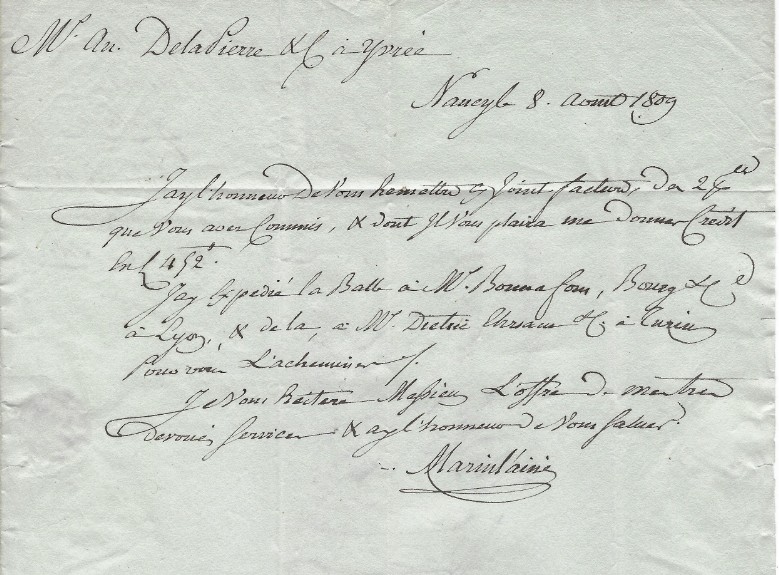 Mrs. An. DelaPierre & C. à Yvrée
Nancy le 8. Aoust 1809
J'ay l'honneur De Vous Remettre cy Joint facture, de 2
que Vous avez Commis, & dont Il Vous plaira me Donner Crédit
En L 452.
J'ay Expédié la Balle à Mrs. Bonnafous, Bourg & Ce
à Lyon, & de la, à Mrs. Dietric & C. à Turin
Pour vous L'acheminer
Je Vous Reitere Messieurs L'offre de mes tres
Devoués Services & ay l'honneur de Vous Saluer.
Marin l'ainé